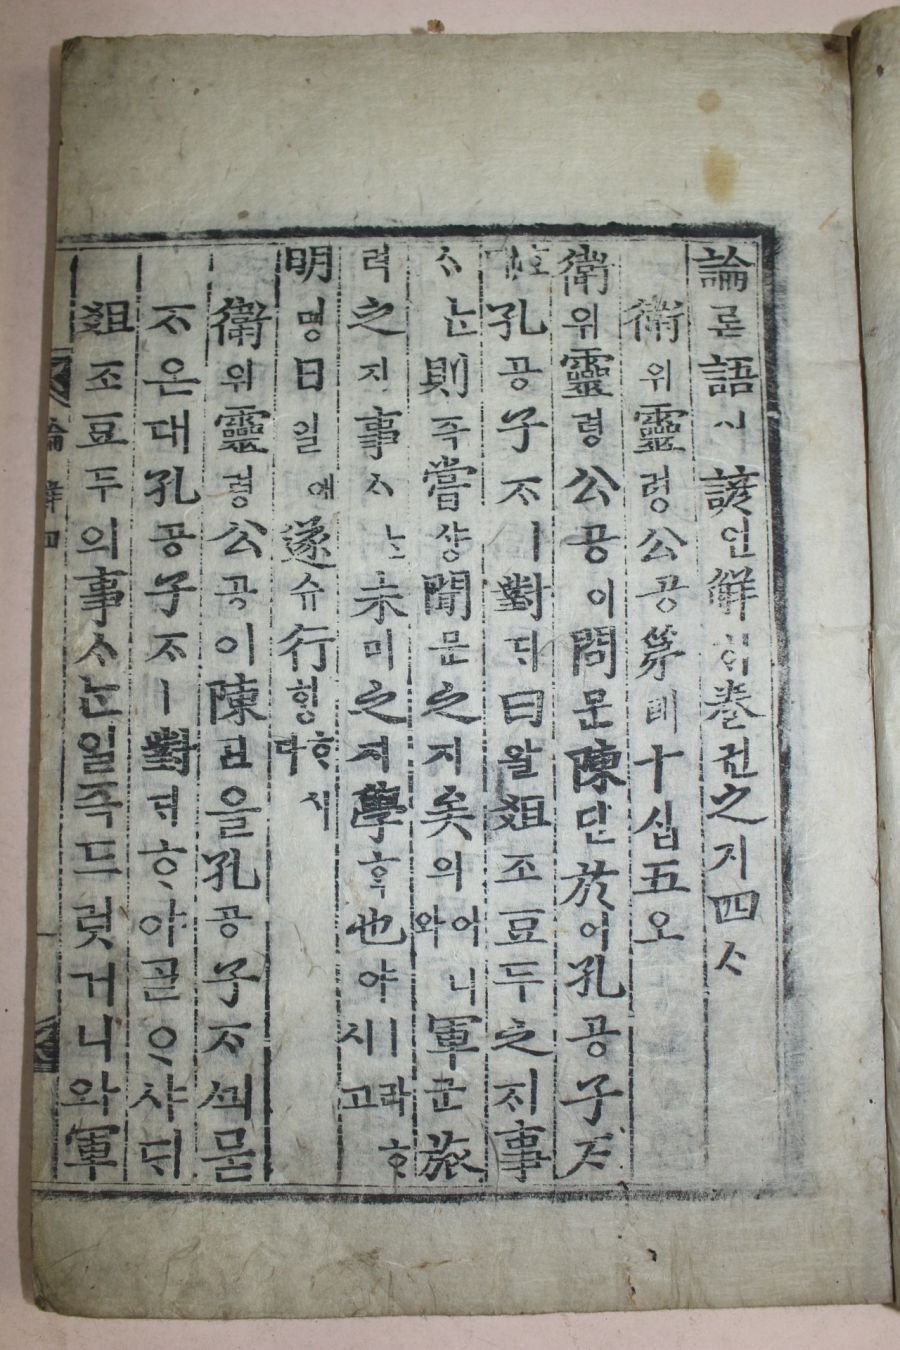 論론語어諺언解ᄒᆡ卷권之지四ᄉᆞ
衛위靈령公공第뎨十십五오
衛위靈령公공이問문陳딘於어孔공子ᄌᆞ
孔공子ᄌᆞㅣ對ᄃᆡ曰왈俎조豆두之지事
ᄉᆞᄂᆞᆫ則즉嘗샹聞문之지矣의어니와軍군旅
력之지事ᄉᆞᄂᆞᆫ未미之지學ᄒᆞᆨ也야ㅣ라ᄒᆞ시고
明명日일에遂슈行ᄒᆡᆼᄒᆞ시다
衛위靈령公공이陳딘을孔공子ᄌᆞᄭᅴ묻
ᄌᆞ온대孔공子ᄌᆞㅣ對ᄃᆡᄒᆞ야골ᄋᆞ샤ᄃᆡ
俎조豆두의事ᄉᆞᄂᆞᆫ일즉드럿거니와軍